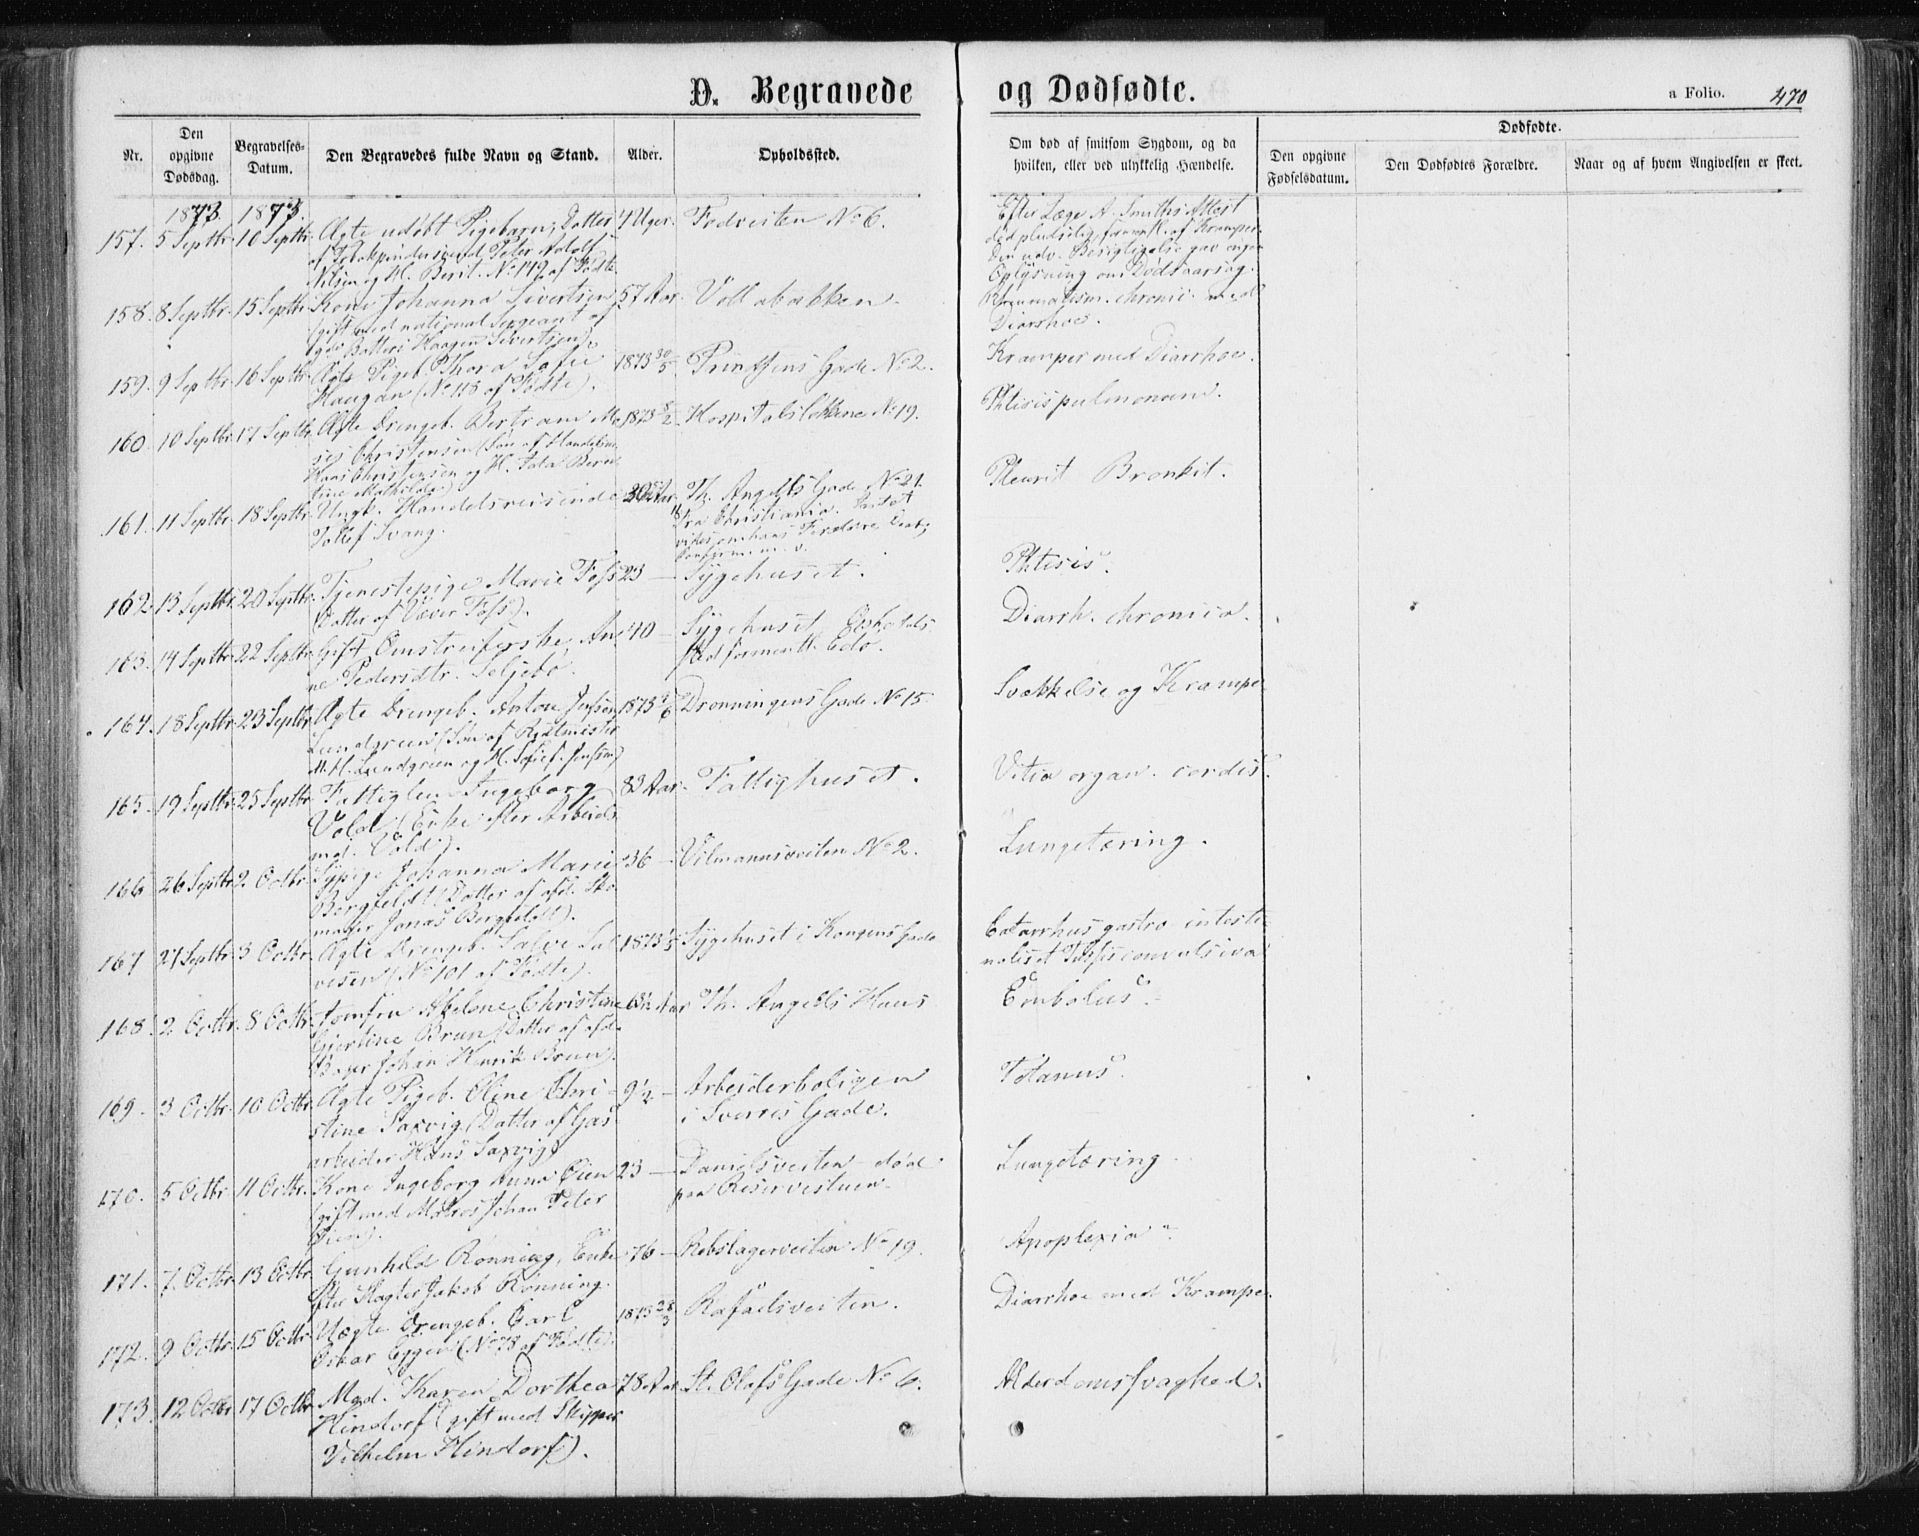 D. Begravede og Dødfødte.
a Folio. 270
Nr.
Den opgivne Dødsdag.
Begravelses-Datum.
Den Begravedes fulde Navn og Stand.
Alder.
Opholdssted.
Om død af smitsom Sygdom, og da hvilken, eller ved ulykkelig Hændelse.
Dødfødte.
Den opgivne Fødselsdatum.
Den Dødfødtes Forældre.
Naar og af hvem Angivelsen er skeet.
1873. 1873.
157. 5 Septbr. 10 Septbr. Ægte udøbt Pigebarn, Datter 4 Uger. Fodveiten No 6. Efter Læge A. Smiths Attest
af Tobakspindersvend Peter Adolf død pludselig, formentl. af Kramper.
Nilsen og H. Berit. No 149 af Fødte. Den udv. Besigtigelse gav ingen
Oplysning om Dødsaarsag.
158. 8 Septbr. 15 Septbr. Kone Johanna Sivertsen 57 Aar. Vollabakken. Rheumatism. chronic. med
(gift med national Sergeant af Diarrhoe.
Batteri Haagen Sivertsen).
159. 9 Septbr. 16 Septbr. Ægte Pigeb. Thora Sofie 1873 30/5 Prindsens Gade No 2. Kramper med Diarrhoe.
Haugan (No 118 af Fødte).
160 10 Septbr. 17 Septbr. Ægte Drengeb. Bertram Mo- 1873 /2. Hospitalsløkkene No 19. Phtisis pulmonum.
ses Christensen (Søn af Handelsm.
Hans Christensen og H. Ida Bern-
tine Mathilde)
161. 11 Septbr. 18 Septbr. Ungk. Handelsreisende Aar. Th. Angells Gade No 21. Pleurit Bronkit.
Tollef Svang. Fra Christiania.
162. 13 Septbr. 20 Septbr. Tjenestepige Marie Foss 23 — Sygehuset. Phtisis.
(Datter af Væver Foss).
163. 14 Septbr. 22 Septbr. Gift Omstreiferske, An- 40 — Sygehuset. Opholds- Diarrh. chronica.
ne Pedersdtr. Seljebo. sted formentl. Edø.
164. 18 Septbr. 23 Septbr. Ægte Drengeb. Anton Jenssen 1873 /6 Dronningens Gade No 15. Svækkelse og Krampe
Lundgreen (Søn af Rittmester
M. H. Lundgreen og H. Sofie f. Jenssen)
165. 19 Septbr. 25 Septbr. Fattiglem Ingeborg 83 Aar. Fattighuset. Vitia organ. cordis.
Vold (Enke efter Arbeids-
md. Vold).
166 26 Septbr. 2 Octbr. Sypige Johanna Marie 36 — Vilmannsveiten No 2. Lungetæring.
Bergfeldt (Datter af afd. Sko-
mager Jonas Bergfeldt).
167 27 Septbr. 3 Octbr. Ægte Drengeb. Salve Sal- 1873 /5 Sygehuset i Kongens Gade Catarrhus gastro intesti-
vesen (No 101 af Fødte). nalis et Tussis convulsiva
168. 2 Octbr. 8 Octbr. Jomfru Abelone Christine Aar Th. Angells Huus Embolus.
Gjertine Brun (Datter af afd.
Bager Johan Henrik Brun).
169. 3 Octbr. 10 Octbr. Ægte Pigeb. Oline Chri- 9 1/2 — Arbeiderboligen Tetanus.
stine Saxvig (Datter af Gas- i Sverres Gade.
arbeider Hans Saxvig)
170. 5 Octbr. 11 Octbr. Kone Ingeborg Anna Øien 23 — Danielsveiten — død Lungetæring
(gift med Matros Johan Peter paa Reservestuen.
Øien).
171. 7. Octbr. 13 Octbr. Gunhild Rønning, Enke 76 — Rebslagerveiten No 19. Apoplexia
efter Slagter Jakob Rønning.
172. 9 Octbr. 15 Octbr. Uægte Drengeb. Carl 1873 28/3 Rafaelsveiten. Diarrhoe med Krampe.
Oskar Eggen (No 78 af Fødte).
173. 12 Octbr. 17 Octbr. Mad. Karen Dorthea 78 Aar. St. Olafs Gade No 6. Alderdomssvaghed.
Hindorf (gift med Skipper
Vilhelm Hindorf).